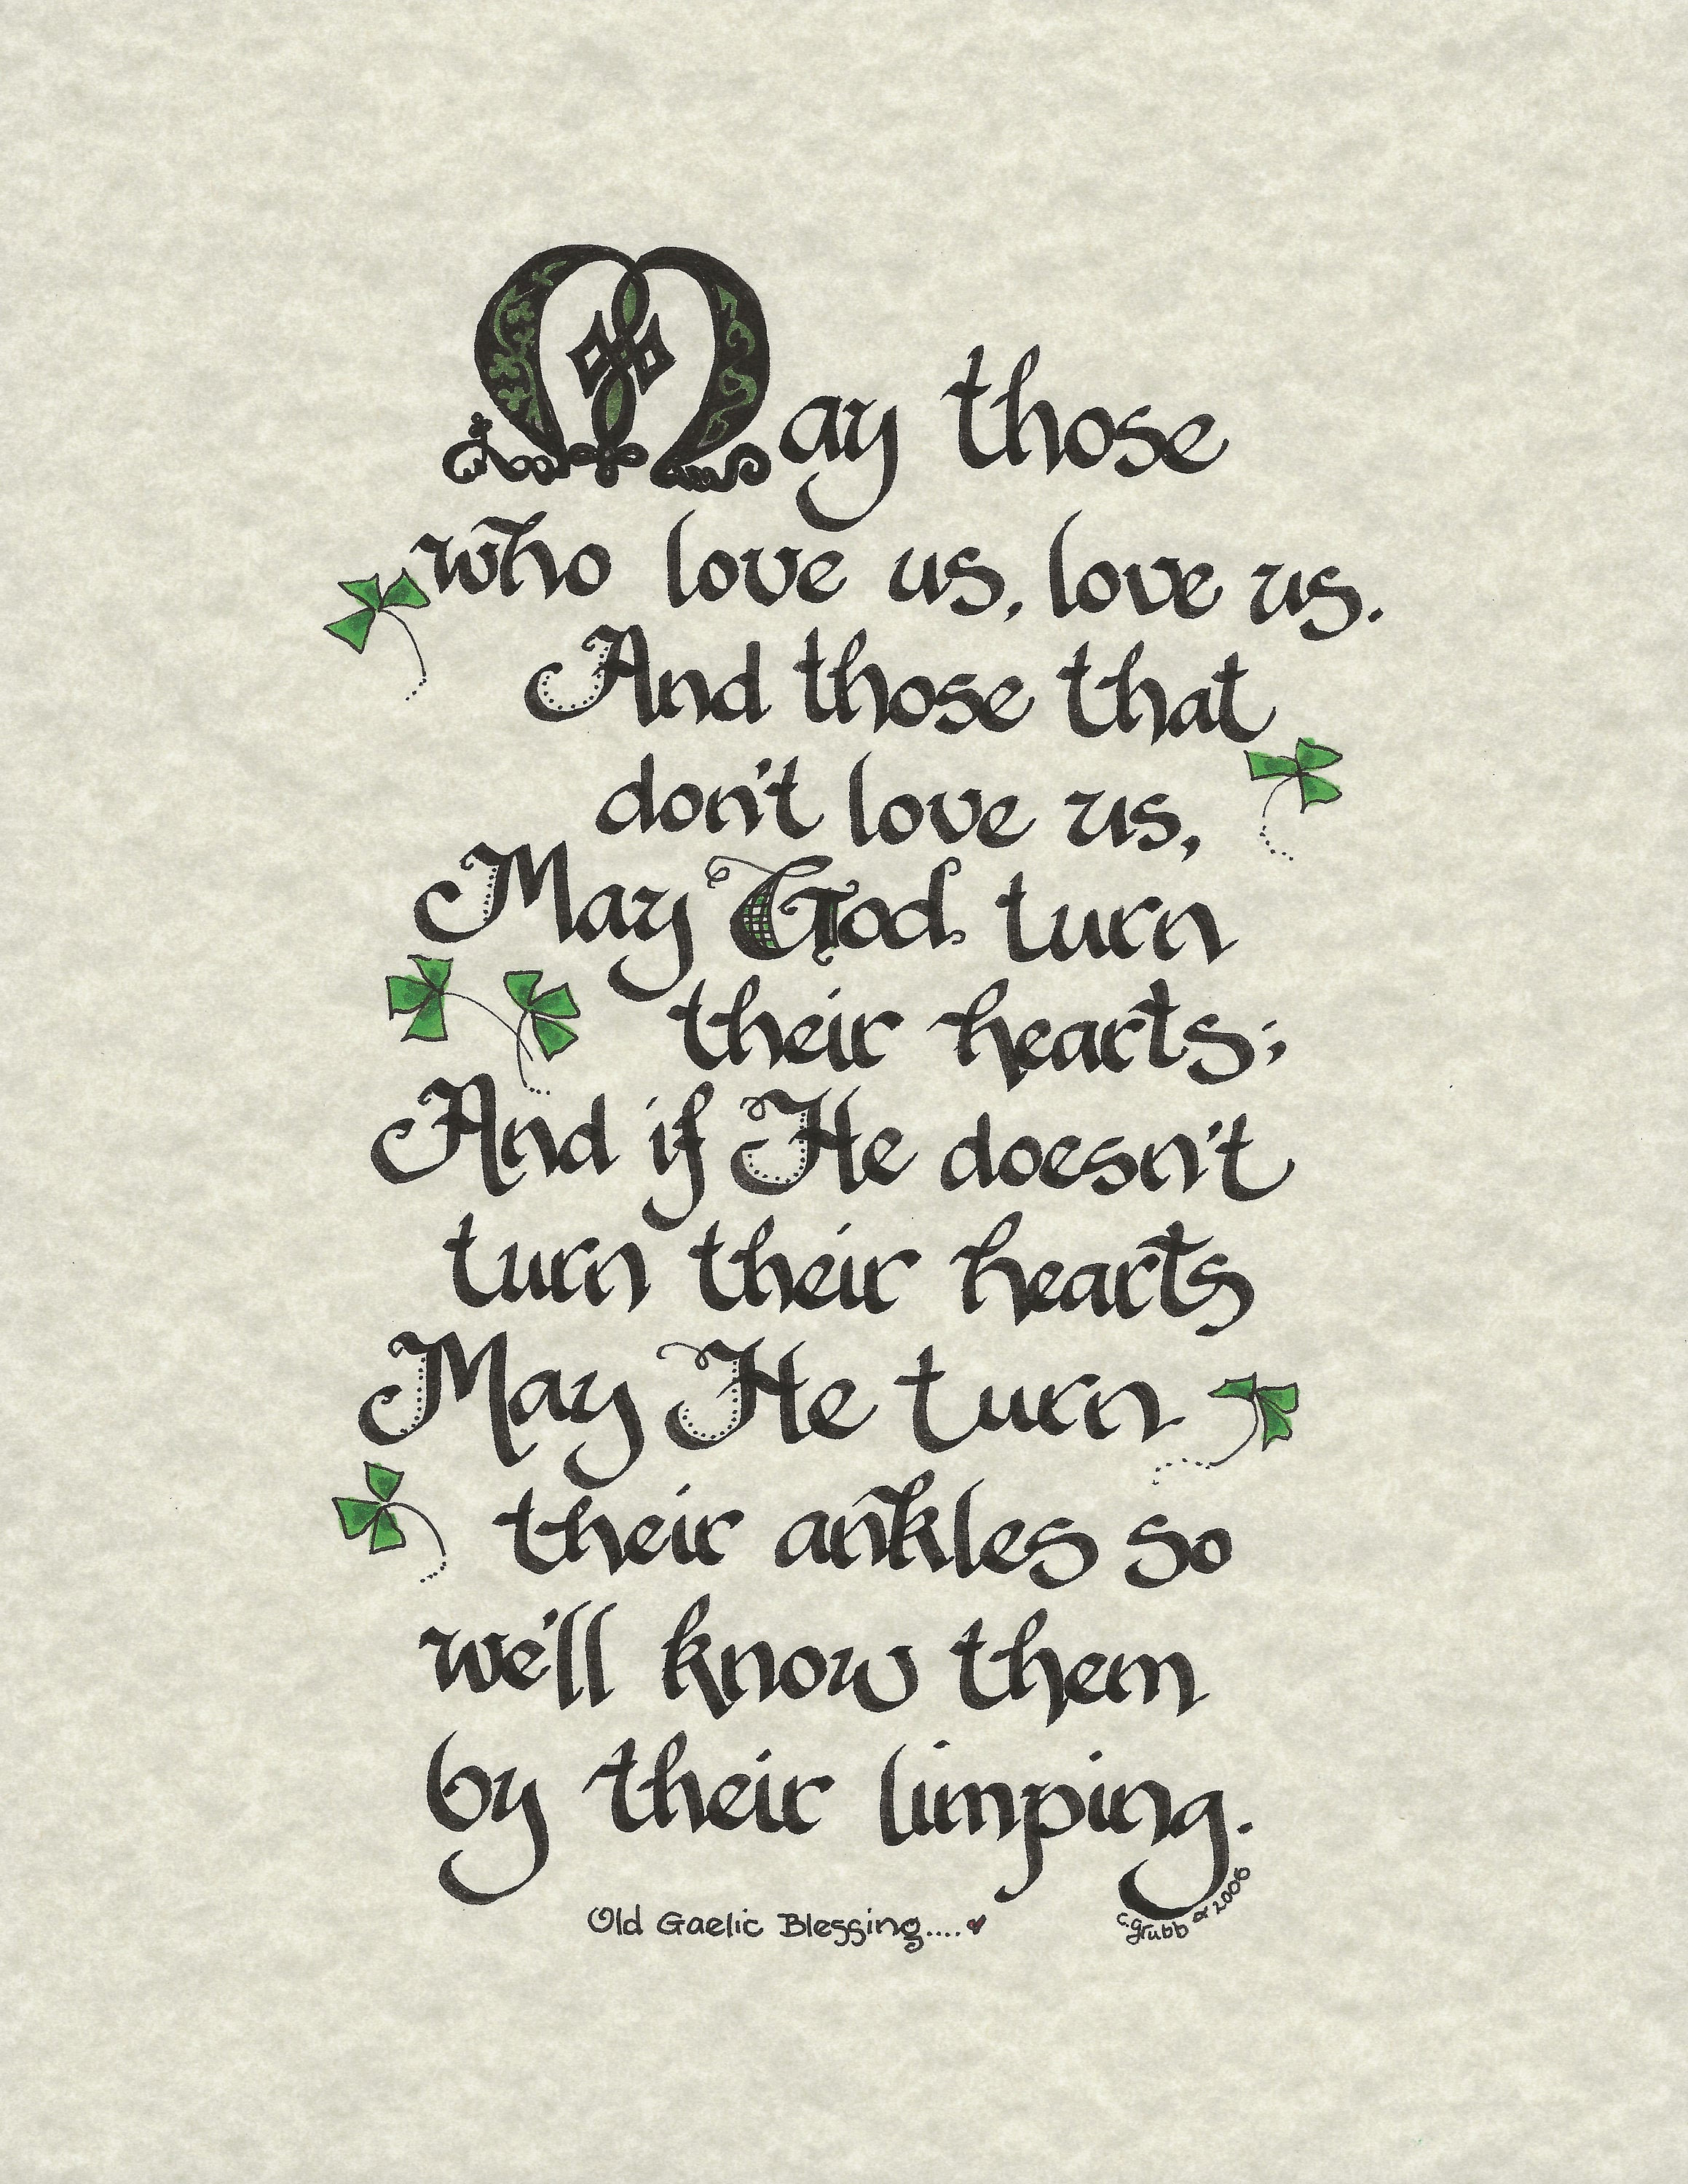 May those
who love us, love us.
And those that
don't love us,
May God turn
their hearts;
And if He doesn't
turn their hearts
May He turn
their ankles so
we'll know them
by their limping.
Old Gaelic Blessing....
c.grubb 2006